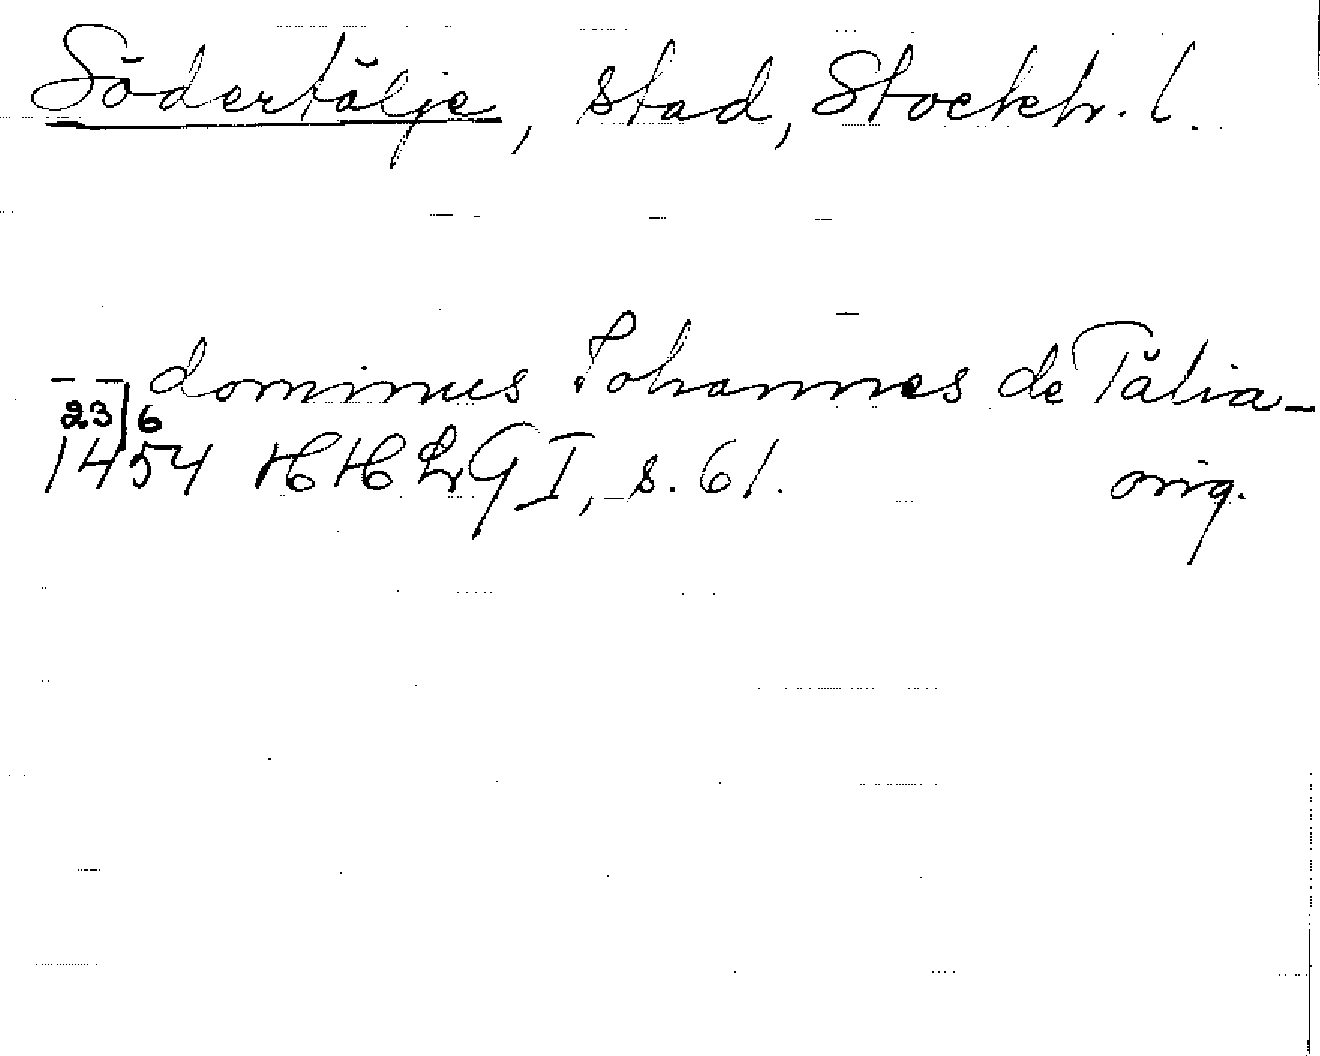 Södertälje, stad, Stockh. l.
— — dominus Johannes de Tälia —
23/6
1454 HH LG I, s. 61. orig.